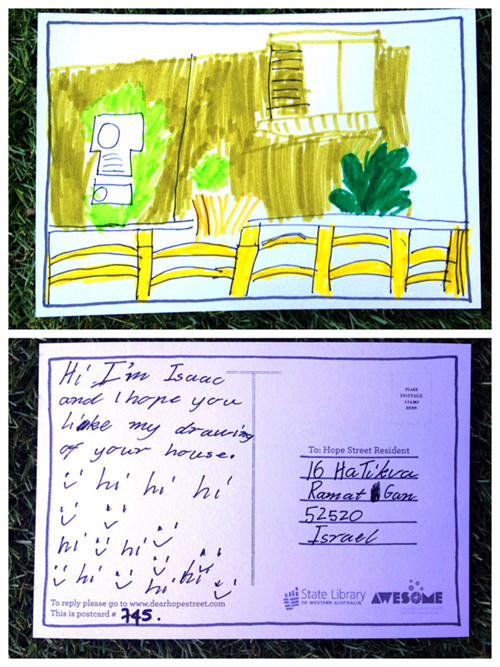 Hi I'm Isaac
and I hope you
like my drawing
of your house.
hi hi hi
hi hi
hi hi hi
To reply please go to www.dearhopestreet.com
This is postcard # 745.
PLACE
POSTAGE
STAMP
HERE
To: Hope Street Resident
16 HaTikva
Ramat Gan
52520
Israel
State Library
OF WESTERN AUSTRALIA
AWESOME